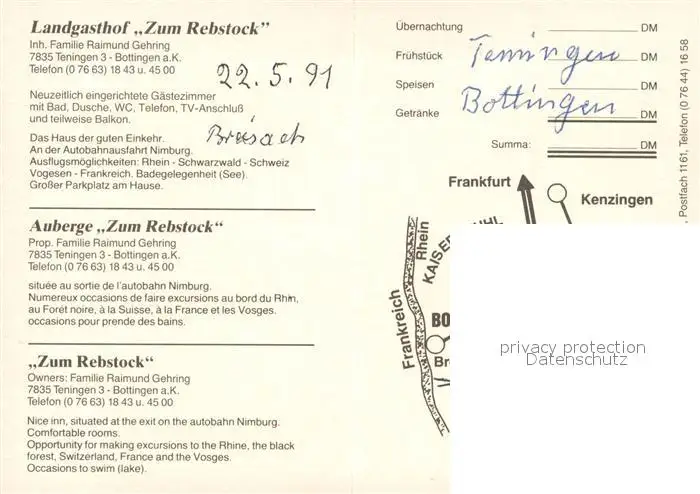 Landgasthof „Zum Rebstock“
Inh. Familie Raimund Gehring
7835 Teningen 3 - Bottingen a.K.
Telefon (0 76 63) 18 43 u. 45 00
22.5.91
Neuzeitlich eingerichtete Gästezimmer
mit Bad, Dusche, WC, Telefon, TV-Anschluß
und teilweise Balkon.
Breisach
Das Haus der guten Einkehr.
An der Autobahnausfahrt Nimburg.
Ausflugsmöglichkeiten: Rhein - Schwarzwald - Schweiz
Vogesen - Frankreich. Badegelegenheit (See).
Großer Parkplatz am Hause.
Auberge „Zum Rebstock“
Prop. Familie Raimund Gehring
7835 Teningen 3 - Bottingen a.K.
Telefon (0 76 63) 18 43 u. 45 00
située au sortie de l'autobahn Nimburg.
Numereux occasions de faire excursions au bord du Rhin,
au Forét noire, à la Suisse, à la France et les Vosges.
occasions pour prende des bains.
„Zum Rebstock“
Owners: Familie Raimund Gehring
7835 Teningen 3 - Bottingen a.K.
Telefon (0 76 63) 18 43 u. 45 00
Nice inn, situated at the exit on the autobahn Nimburg.
Comfortable rooms.
Opportunity for making excursions to the Rhine, the black
forest, Switzerland, France and the Vosges.
Occasions to swim (lake).
Übernachtung DM
Frühstück DM
Teningen
Speisen DM
Bottingen
Getränke DM
Summa: DM
Frankfurt
Kenzingen
Rhein
Frankreich
BO
Br
, Postfach 1161, Telefon (0 76 44) 16 58
privacy protection
Datenschutz